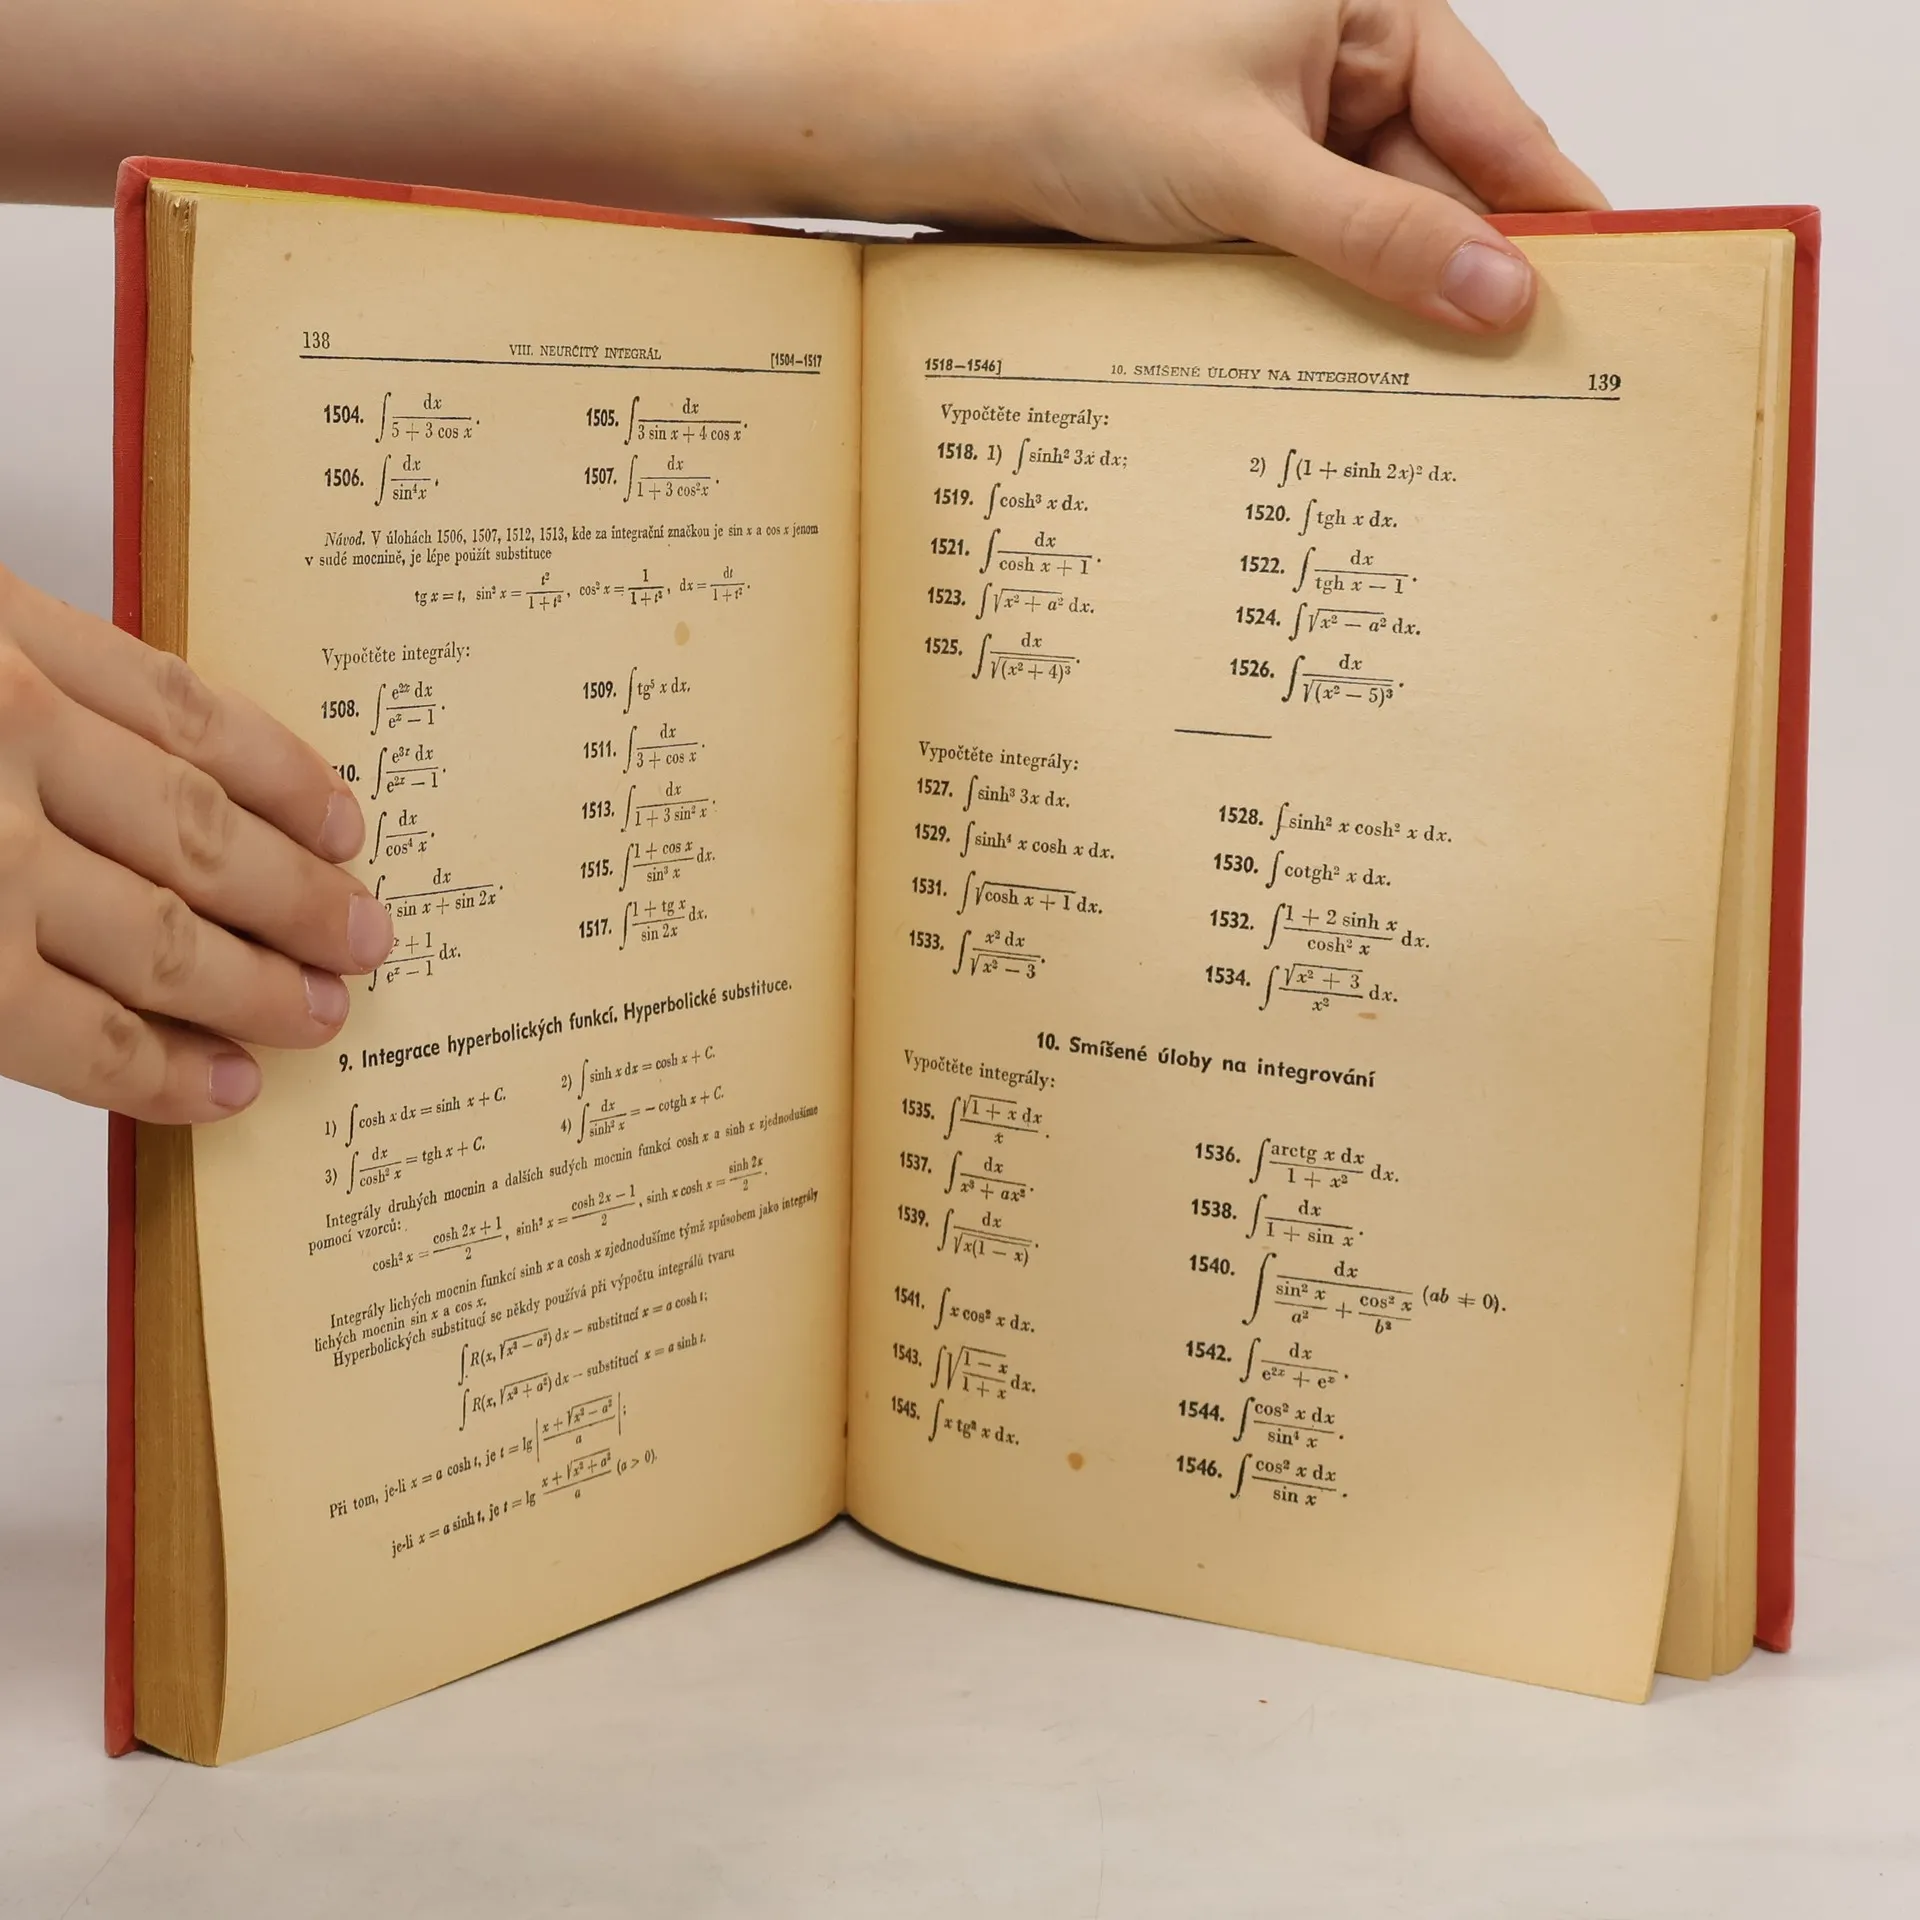 138 VIII. NEURČITÝ INTEGRÁL [1504—1517
1504. ∫ dx / (5 + 3 cos x). 1505. ∫ dx / (3 sin x + 4 cos x).
1506. ∫ dx / sin⁴x. 1507. ∫ dx / (1 + 3 cos²x).
Návod. V úlohách 1506, 1507, 1512, 1513, kde za integrační značkou je sin x a cos x jenom
v sudé mocnině, je lépe použít substituce
tg x = t, sin² x = t² / (1 + t²), cos² x = 1 / (1 + t²), dx = dt / (1 + t²).
Vypočtěte integrály:
1508. ∫ e²ˣ dx / (eˣ − 1). 1509. ∫ tg⁵ x dx.
10. ∫ e³ˣ dx / (e²ˣ − 1). 1511. ∫ dx / (3 + cos x).
∫ dx / cos⁴ x. 1513. ∫ dx / (1 + 3 sin² x).
∫ dx / (2 sin x + sin 2x). 1515. ∫ (1 + cos x) / sin³ x dx.
∫ (eˣ + 1) / (eˣ − 1) dx. 1517. ∫ (1 + tg x) / sin 2x dx.
9. Integrace hyperbolických funkcí. Hyperbolické substituce.
1) ∫ cosh x dx = sinh x + C. 2) ∫ sinh x dx = cosh x + C.
3) ∫ dx / cosh² x = tgh x + C. 4) ∫ dx / sinh² x = − cotgh x + C.
Integrály druhých mocnin a dalších sudých mocnin funkcí cosh x a sinh x zjednodušíme
pomocí vzorců:
cosh² x = (cosh 2x + 1) / 2, sinh² x = (cosh 2x − 1) / 2, sinh x cosh x = sinh 2x / 2.
Integrály lichých mocnin funkcí sinh x a cosh x zjednodušíme týmž způsobem jako integrály
lichých mocnin sin x a cos x.
Hyperbolických substitucí se někdy používá při výpočtu integrálů tvaru
∫ R(x, √(x² − a²)) dx − substitucí x = a cosh t;
∫ R(x, √(x² + a²)) dx − substitucí x = a sinh t.
Při tom, je-li x = a cosh t, je t = lg |(x + √(x² − a²)) / a|;
je-li x = a sinh t, je t = lg (x + √(x² + a²)) / a (a > 0).
1518—1546] 10. SMÍŠENÉ ÚLOHY NA INTEGROVÁNÍ 139
Vypočtěte integrály:
1518. 1) ∫ sinh² 3x dx; 2) ∫ (1 + sinh 2x)² dx.
1519. ∫ cosh³ x dx. 1520. ∫ tgh x dx.
1521. ∫ dx / (cosh x + 1). 1522. ∫ dx / (tgh x − 1).
1523. ∫ √(x² + a²) dx. 1524. ∫ √(x² − a²) dx.
1525. ∫ dx / √((x² + 4)³). 1526. ∫ dx / √((x² − 5)³).
Vypočtěte integrály:
1527. ∫ sinh³ 3x dx. 1528. ∫ sinh² x cosh² x dx.
1529. ∫ sinh⁴ x cosh x dx. 1530. ∫ cotgh² x dx.
1531. ∫ √(cosh x + 1) dx. 1532. ∫ (1 + 2 sinh x) / cosh² x dx.
1533. ∫ x² dx / √(x² − 3). 1534. ∫ √(x² + 3) / x² dx.
10. Smíšené úlohy na integrování
Vypočtěte integrály:
1535. ∫ √(1 + x) dx / x. 1536. ∫ arctg x dx / (1 + x²) dx.
1537. ∫ dx / (x³ + ax²). 1538. ∫ dx / (1 + sin x).
1539. ∫ dx / √(x(1 − x)). 1540. ∫ dx / (sin² x / a² + cos² x / b²) (ab ≠ 0).
1541. ∫ x cos² x dx. 1542. ∫ dx / (e²ˣ + eˣ).
1543. ∫ √((1 − x) / (1 + x)) dx. 1544. ∫ cos² x dx / sin⁴ x.
1545. ∫ x tg² x dx. 1546. ∫ cos² x dx / sin x.